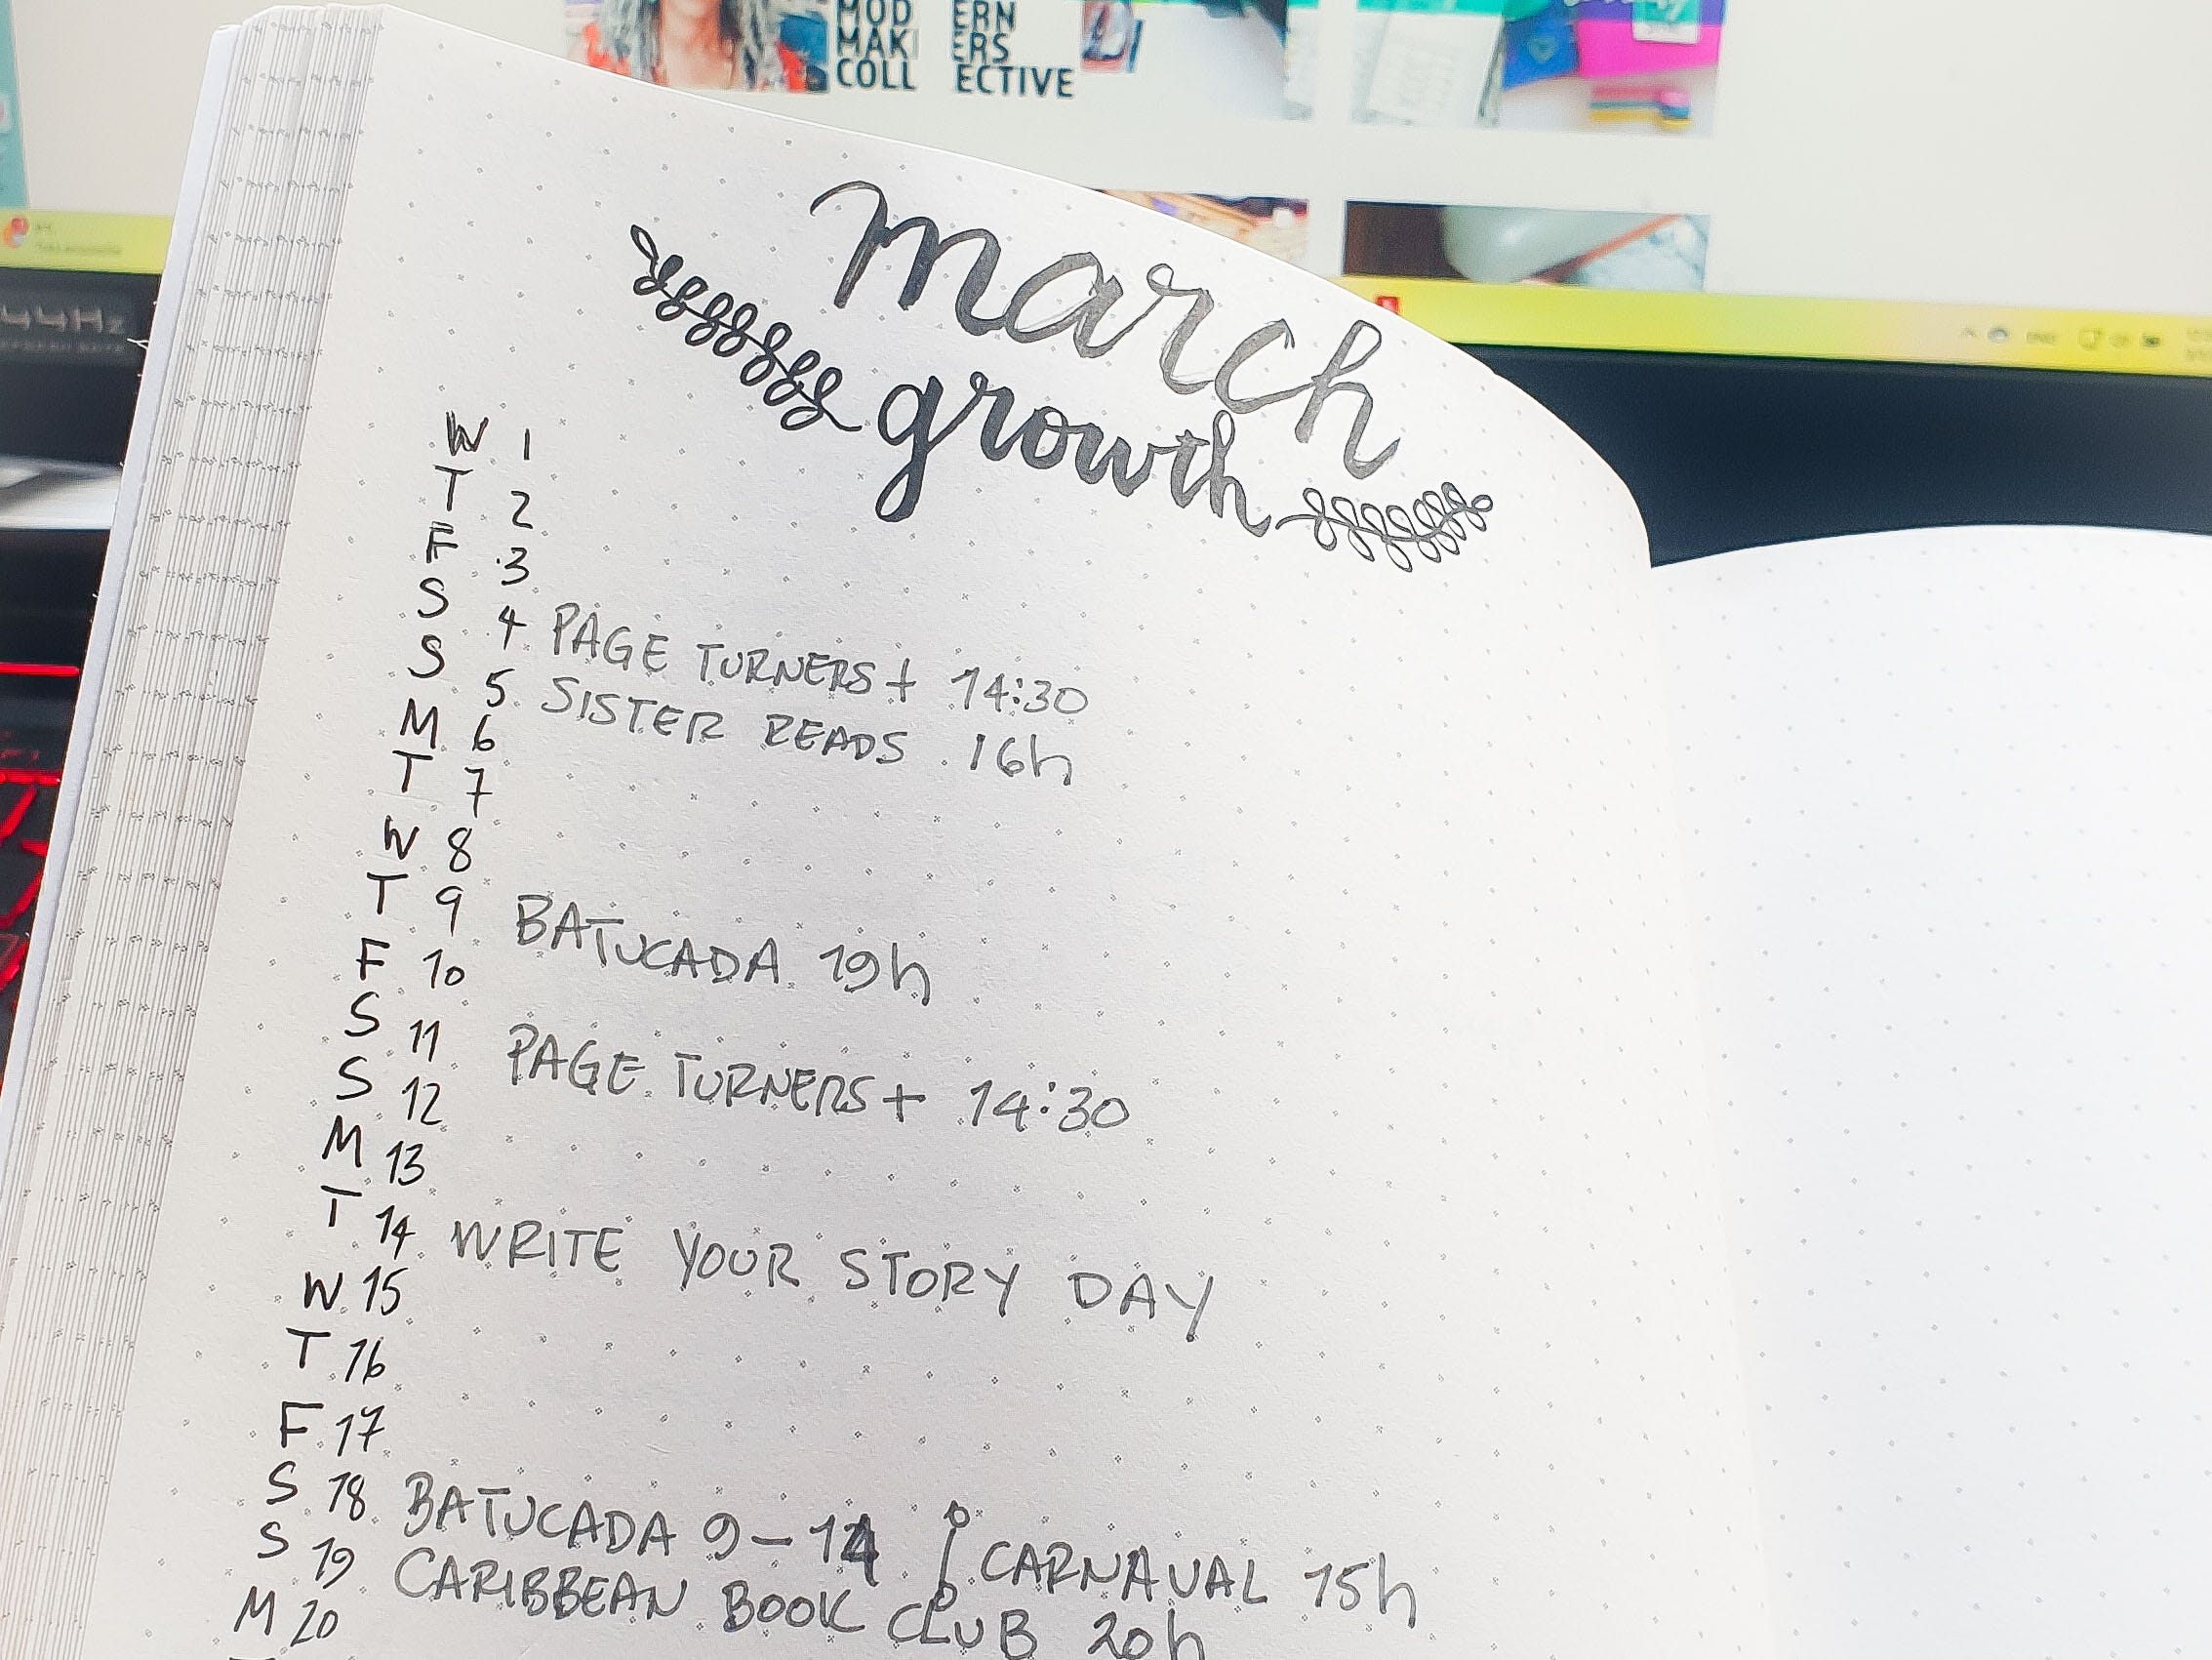 MOD ERN
MAK ERS
COLL ECTIVE
march
growth
W 1
T 2
F 3
S 4 PAGE TURNERS + 14:30
S 5 SISTER READS 16h
M 6
T 7
W 8
T 9 BATUCADA 19h
F 10
S 11 PAGE TURNERS + 14:30
S 12
M 13
T 14 WRITE YOUR STORY DAY
W 15
T 16
F 17
S 18 BATUCADA 9-14 CARNAVAL 15h
S 19 CARIBBEAN BOOK CLUB 20h
M 20